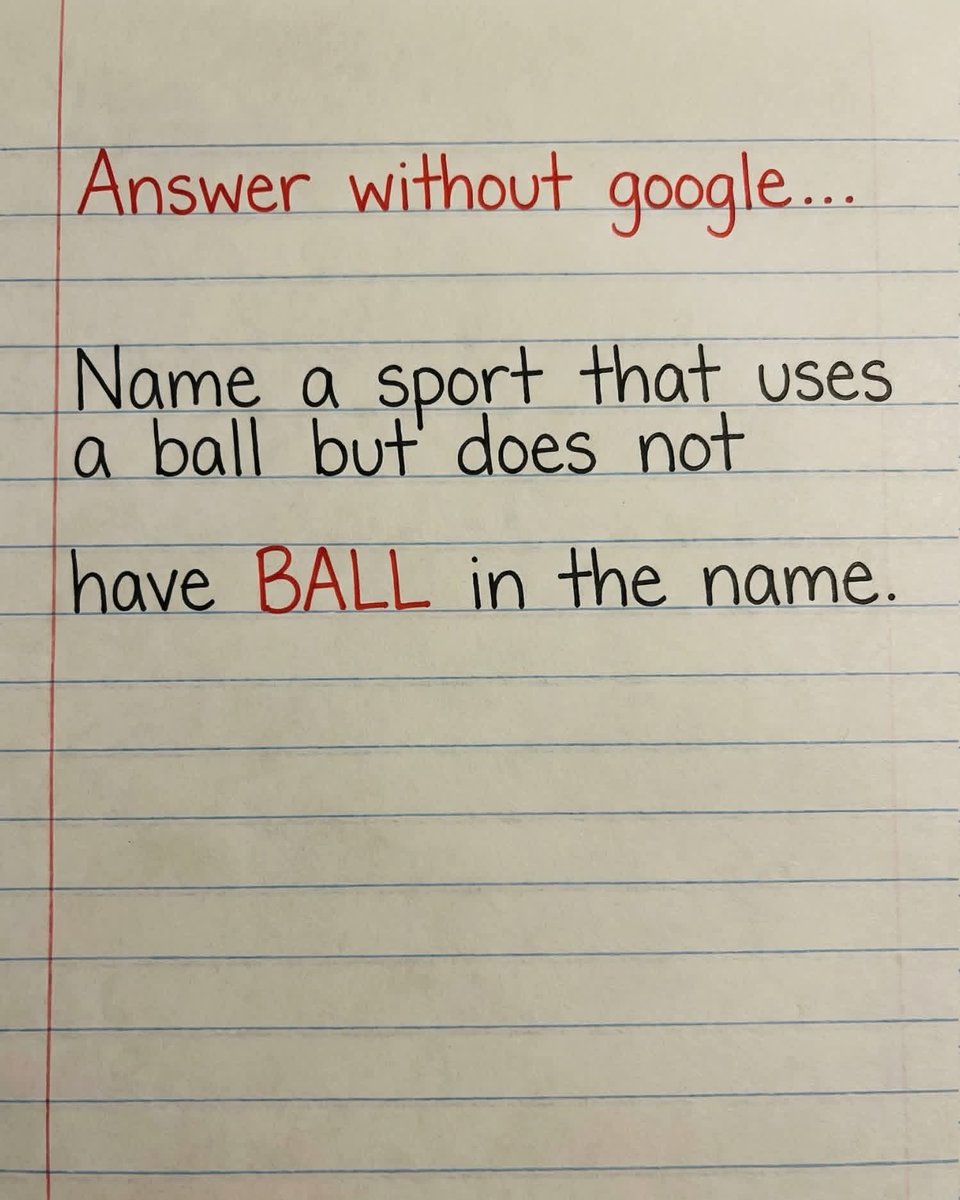 Answer without google...
Name a sport that uses
a ball but does not
have BALL in the name.